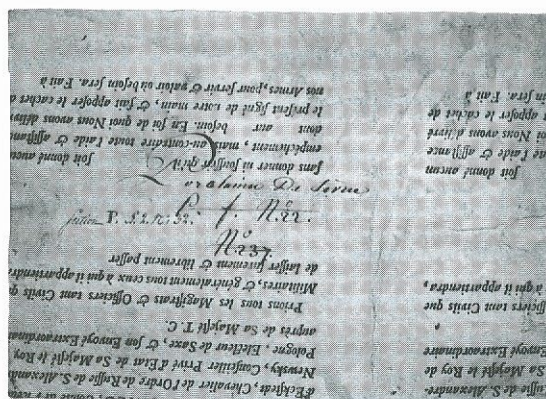 P. f. N.º 22.
N.º 237.
d'Eckstedt, Chevalier de l'Ordre de Russie de S. Alexand
Newsky, Conseiller Privé d'Etat de Sa Majesté le Roy
Pologne, Electeur de Saxe, & son Envoyé Extraordinair
auprès de Sa Majesté T. C.
Prions tous les Magistrats & Officiers tant Civils q
Militaires, & généralement tous ceux à qui il appartiendra
de laisser surement & librement passer
sans donner ni souffrir qu'il soit donné aucun
empêchement, mais au-contraire toute l'aide & assistan
dont aur besoin. En foi de quoi Nous avons délivr
le présent signé de notre main, & fait apposer le cachet d
nos Armes, pour servir & valoir où besoin sera. Fait à
ussie de S. Alexandre-
Sa Majesté le Roy de
Envoyé Extraordinaire
fficiers tant Civils que
à qui il appartiendra,
soit donné aucun
de l'aide & assistance
oi Nous avons délivré
apposer le cachet de
in sera. Fait à